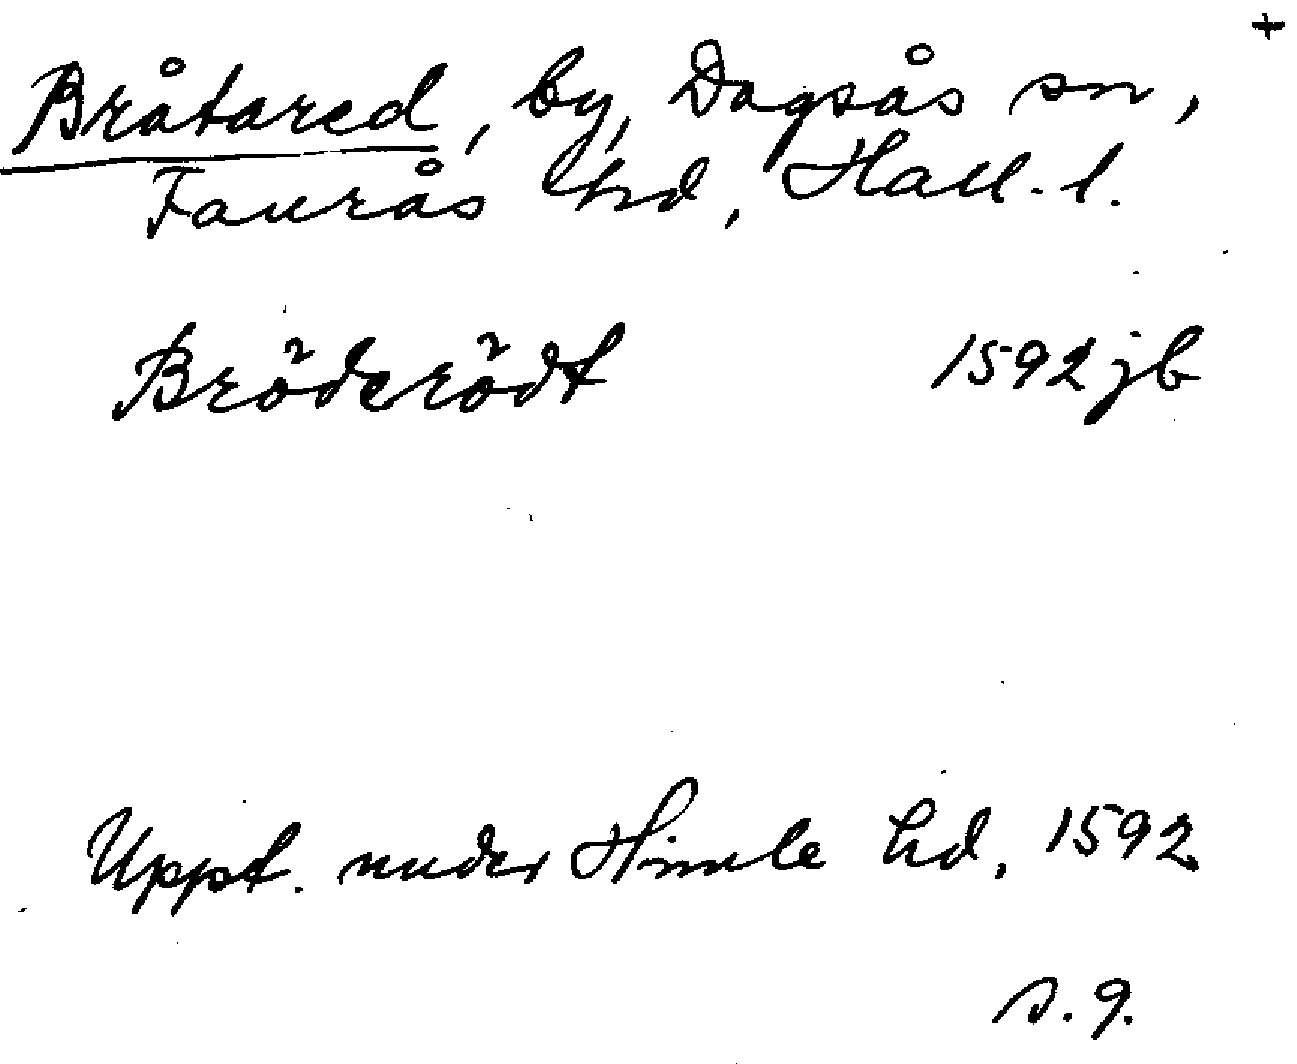 +
Bråtared, by, Dagsås sn,
Faurås hd, Hall. l.
Bröderödt 1592 jb
Uppt. under Himle hd, 1592
s. 9.